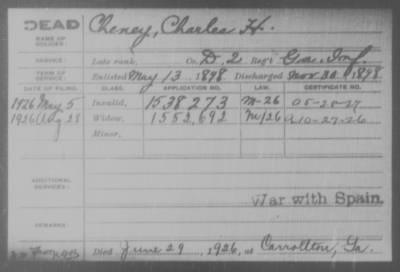 DEAD Cheney, Charles H.
NAME OF SOLDIER:
SERVICE: Late rank, Co. D, 2 Reg't Ga. Inf.
TERM OF SERVICE: Enlisted May 13, 1898 Discharged Nov. 1898
DATE OF FILING. CLASS. APPLICATION NO. LAW. CERTIFICATE NO.
1926 May 5 Invalid, 1538273 M-26
1926 Widow, 1552692 M/26 A10-27-26
Minor,
ADDITIONAL SERVICES:
War with Spain.
REMARKS:
Died June 29, 1926, at Carrollton, Ga.